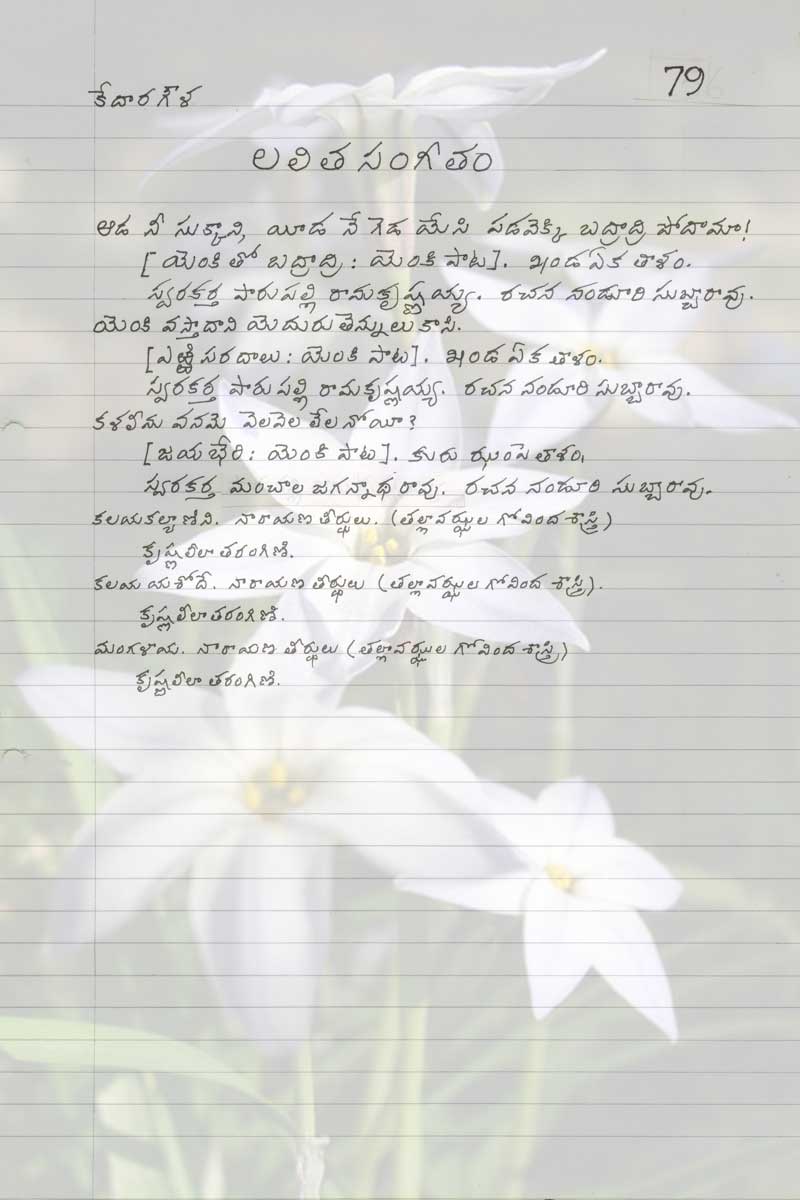 కేదారగౌళ
79
లలిత సంగీతం
ఆడ నీ సుక్కాని, యీడ నే గెడ యేసి పడవెక్కి బద్రాద్రి పోదామా!
[యెంకి తో బద్రాద్రి : యెంకి పాట]. ఖండ ఏక తాళం.
స్వరకర్త పారుపల్లి రామకృష్ణయ్య. రచన నండూరి సుబ్బారావు.
యెంకి వస్తాదాని యెదురుతెన్నులు కాసి.
[ఎఱ్ఱి సరదాలు : యెంకి పాట]. ఖండ ఏక తాళం.
స్వరకర్త పారుపల్లి రామకృష్ణయ్య. రచన నండూరి సుబ్బారావు.
కళవీడు వనమె వెలవెల లేలనోయీ?
[జయభేరి : యెంకి పాట]. కురు ఝంపె తాళం.
స్వరకర్త మంచాల జగన్నాధ రావు. రచన నండూరి సుబ్బారావు.
కలయకల్యాణిని. నారాయణ తీర్థులు. (తల్లావఝ్ఝల గోవింద శాస్త్రి)
కృష్ణలీలా తరంగిణి.
కలయ యశోదే. నారాయణ తీర్థులు (తల్లావఝ్ఝల గోవింద శాస్త్రి).
కృష్ణలీలా తరంగిణి.
మంగళాయ. నారాయణ తీర్థులు (తల్లావఝ్ఝల గోవింద శాస్త్రి)
కృష్ణలీలా తరంగిణి.